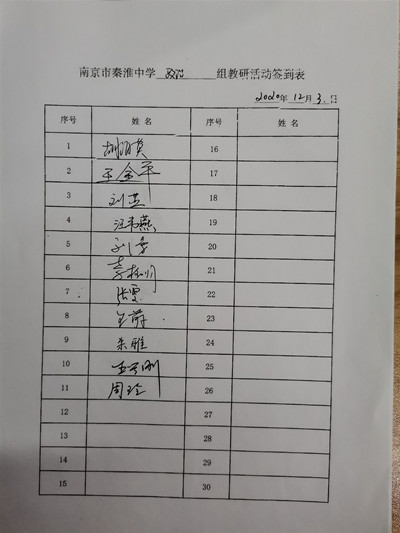 南京市秦淮中学 政治 组教研活动签到表
2020年 12月 3 日
序号 姓名 序号 姓名
1 16
2 王金平 17
3 刘芸 18
4 汪书燕 19
5 20
6 李桂明 21
7 张雯 22
8 王蔚 23
9 朱雅 24
10 25
11 周玲 26
12 27
13 28
14 29
15 30